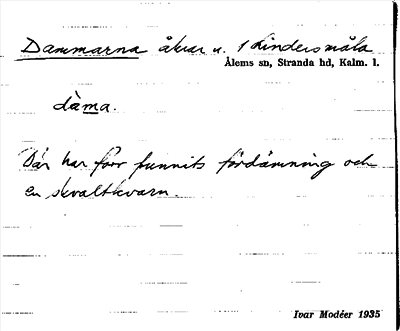 Dammarna åkrar u. 1 Lindersmåla
Ålems sn, Stranda hd, Kalm. l.
dàma.
Där har förr funnits fördämning och
en skvaltkvarn.
Ivar Modéer 1935